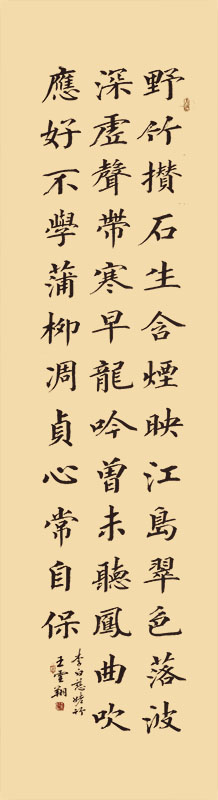 野竹攢石生含煙映江島翠色落波
深虛聲帶寒早龍吟曾未聽鳳曲吹
應好不學蒲柳凋貞心常自保
李白慈姥竹
王雲翔